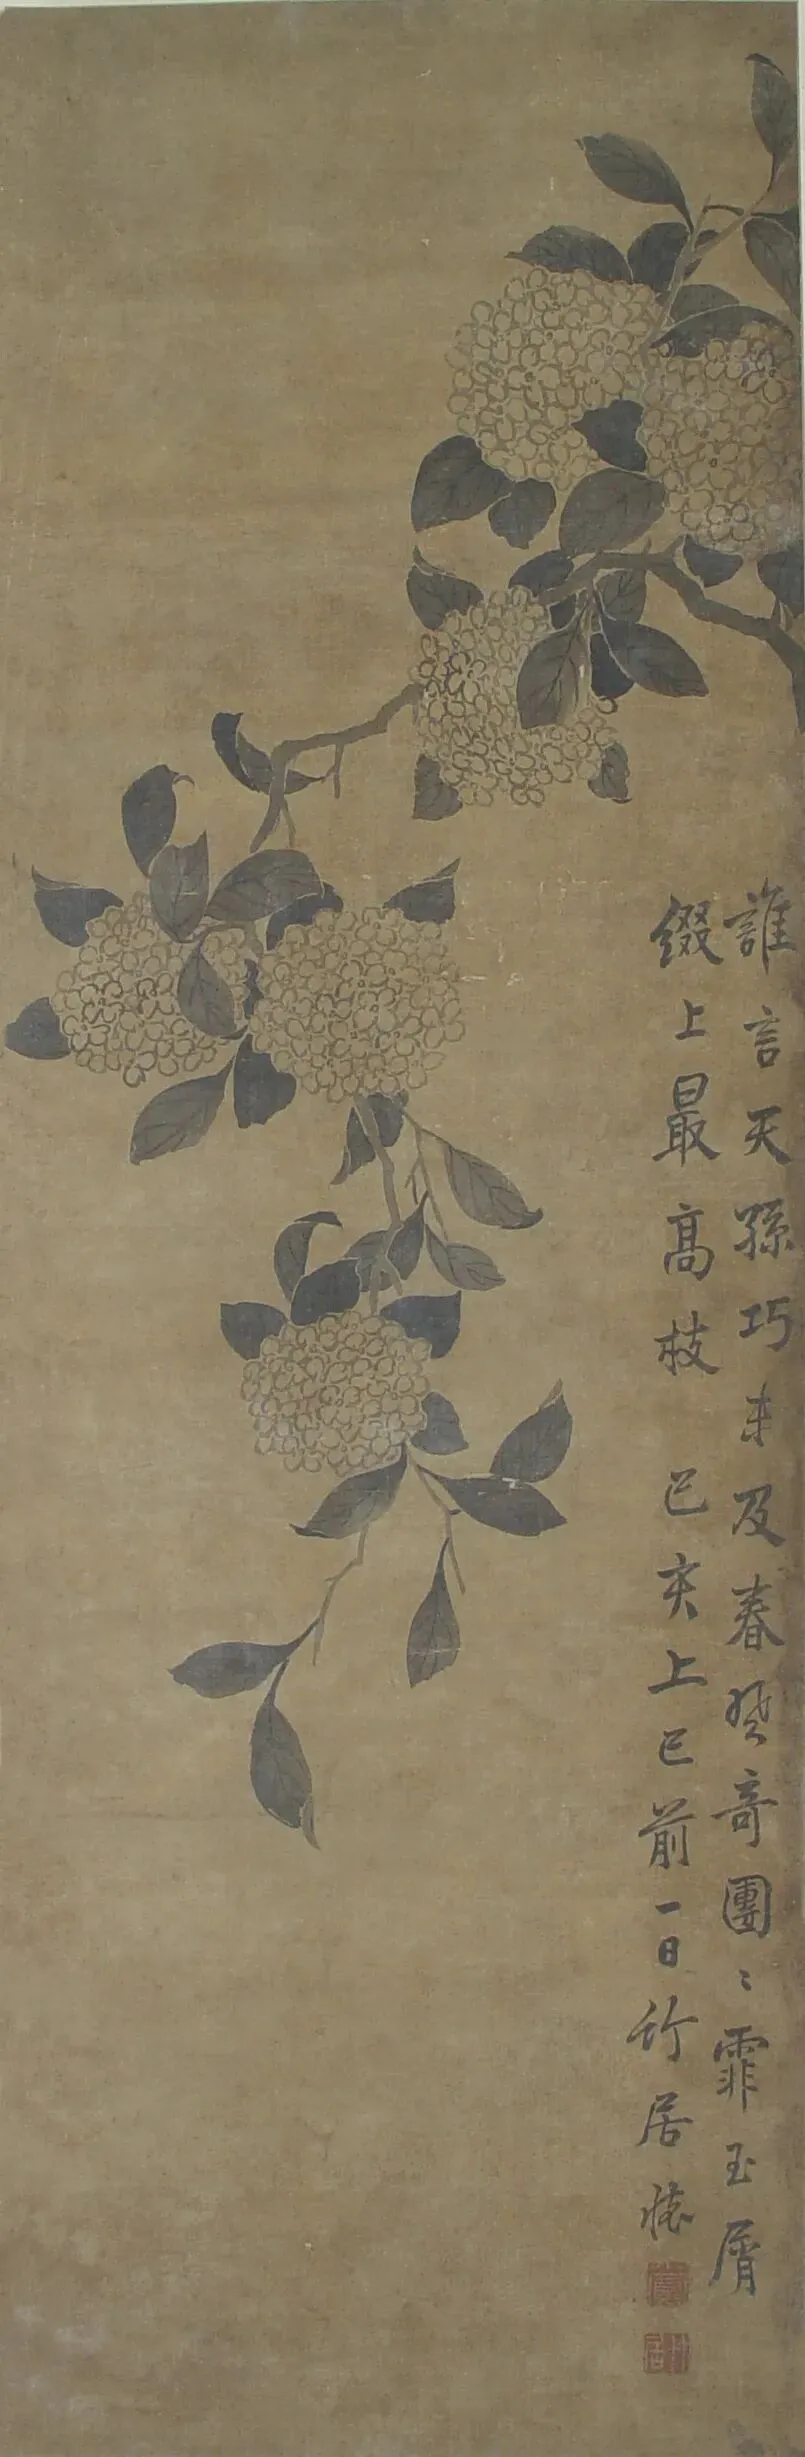 誰言天孫巧未及春工奇團〻霏玉屑
綴上最高枝 己亥上巳前一日竹居